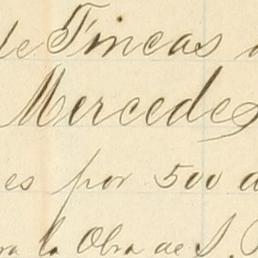 de Fincas
Mercedes
es por 500
ra la Obra de S.